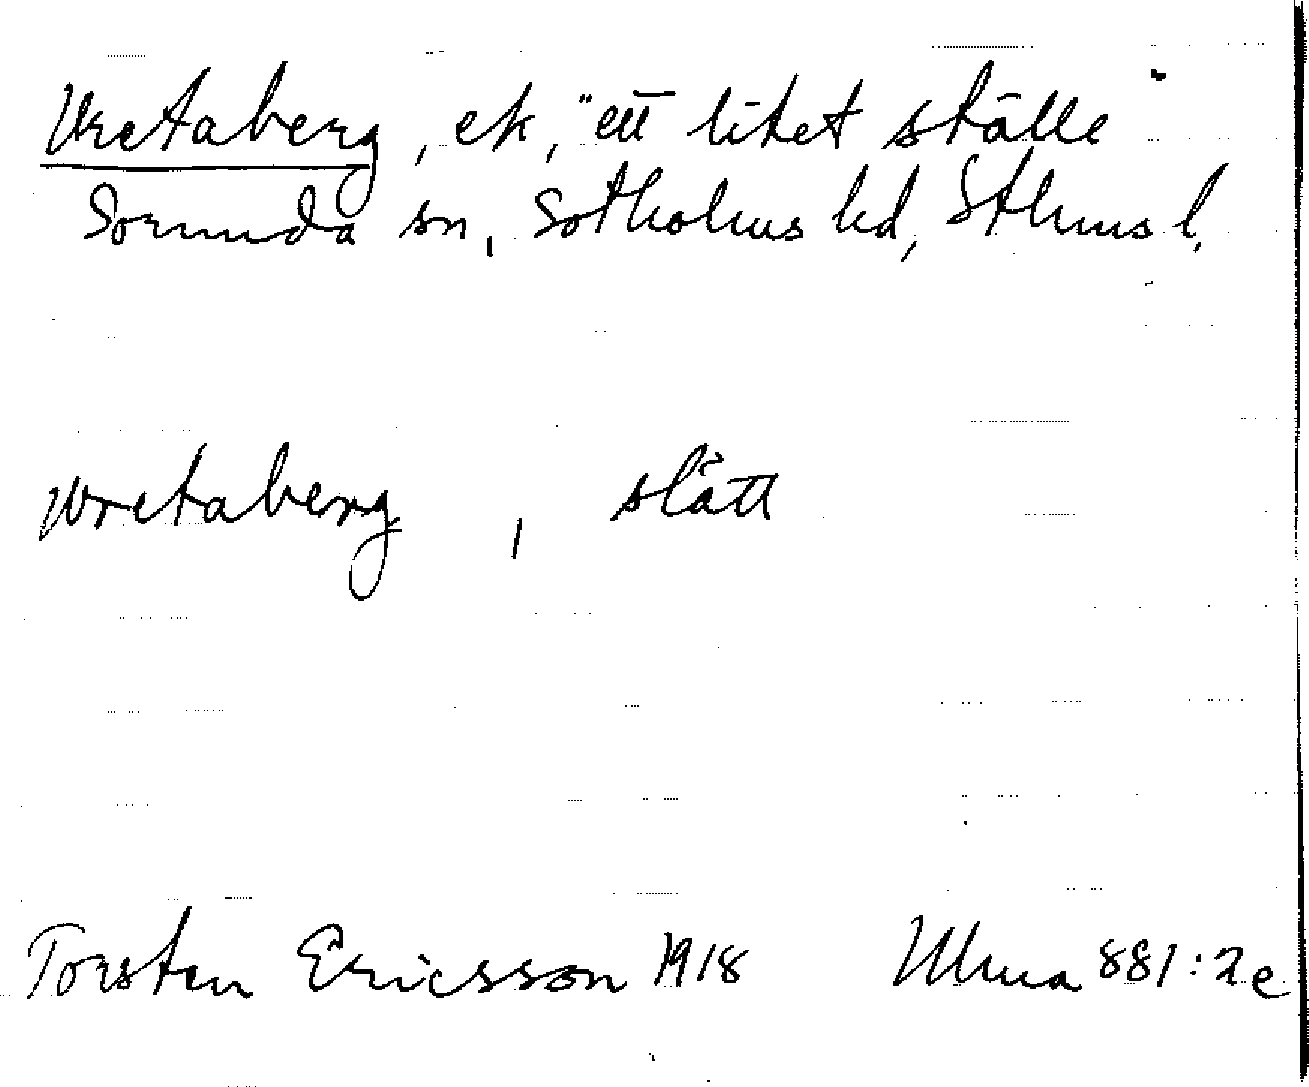 Vretaberg, ek, "ett litet ställe"
Sorunda sn, Sotholms hd, Sthlms l.
vretaberg , slått
Torsten Ericsson 1918 Ulma 881:2e